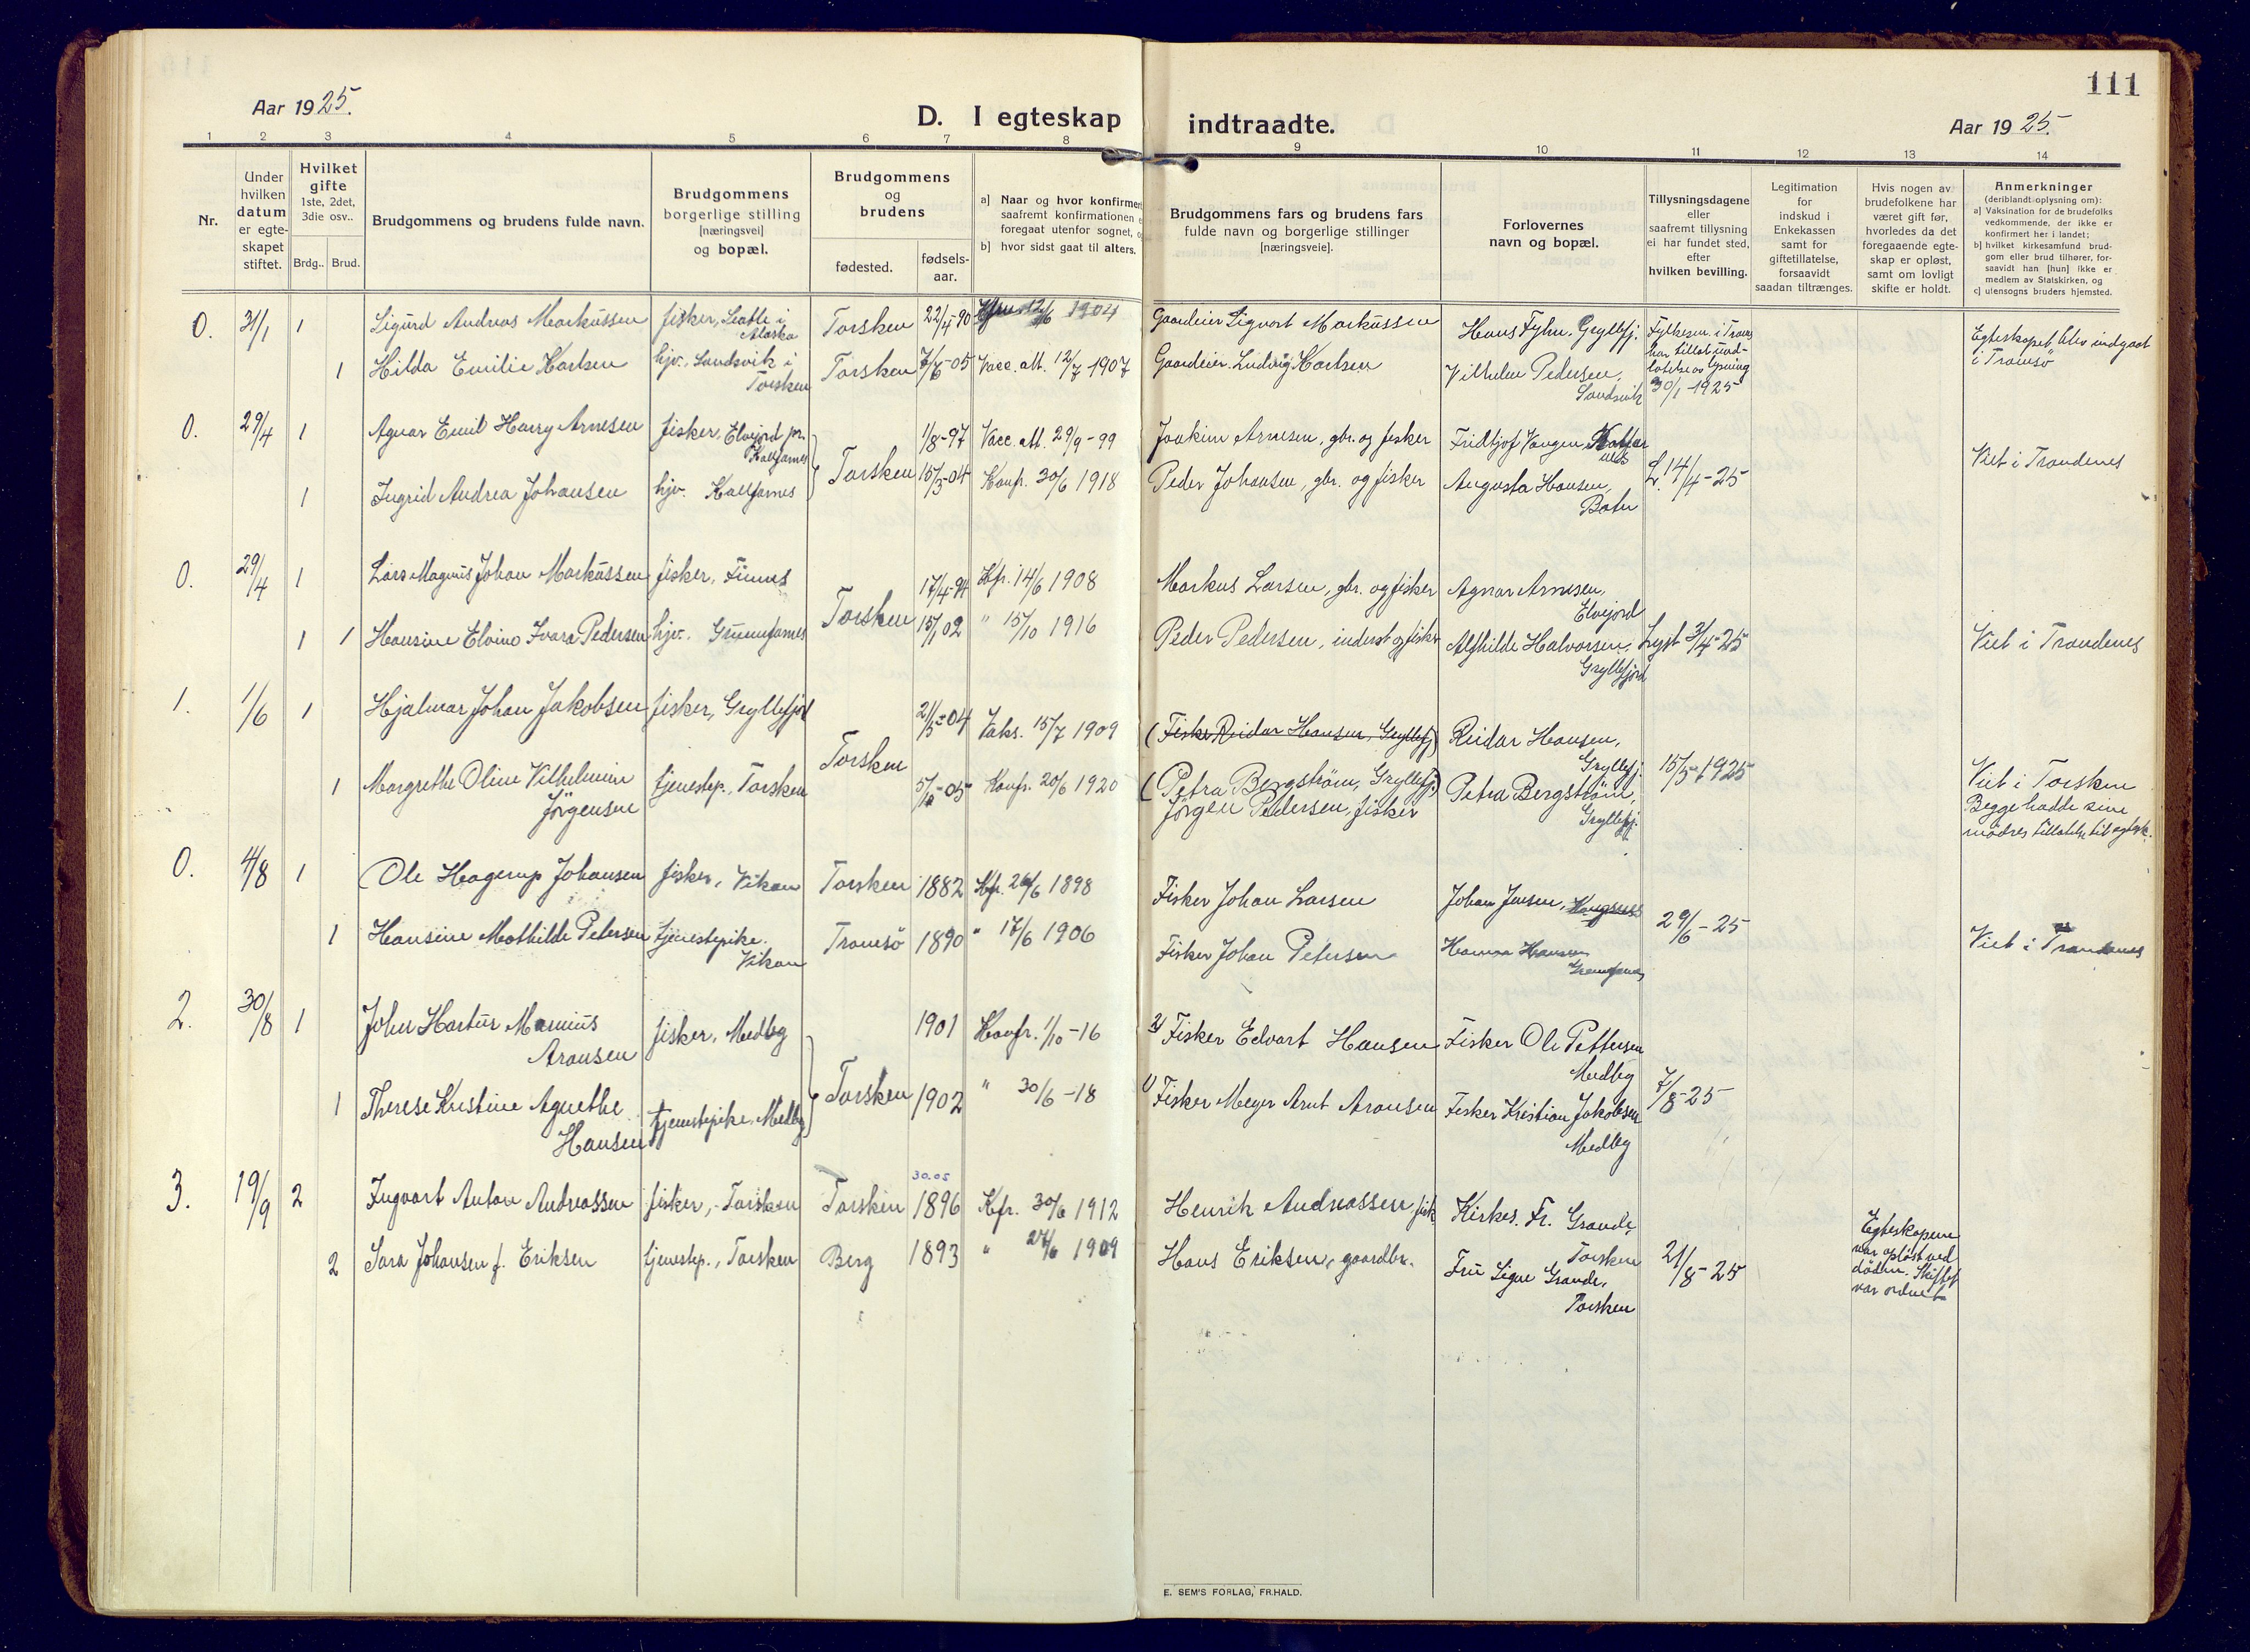 111
Aar 1925.
D. I egteskap indtraadte.
Aar 1925.
1 2 3 4 5 6 7 8 9 10 11 12 13 14
Nr.
Under hvilken datum er egte-skapet stiftet.
Hvilket gifte 1ste, 2det, 3die osv..
Brdg.. Brud.
Brudgommens og brudens fulde navn.
Brudgommens borgerlige stilling [næringsvei] og bopæl.
Brudgommens og brudens
fødested.
fødsels-aar.
a] Naar og hvor konfirmer
saafremt konfirmationen
foregaat utenfor sognet, o
b] hvor sidst gaat til alters.
Brudgommens fars og brudens fars
fulde navn og borgerlige stillinger
[næringsveie].
Forlovernes
navn og bopæl.
Tillysningsdagene
eller
saafremt tillysning
ei har fundet sted,
efter
hvilken bevilling.
Legitimation
for
indskud i
Enkekassen
samt for
giftetillatelse,
forsaavidt
saadan tiltrænges.
Hvis nogen av
brudefolkene har
været gift før,
hvorledes da det
foregaaende egte-
skap er opløst,
samt om lovligt
skifte er holdt.
Anmerkninger
(deriblandt oplysning om):
a] Vaksination for de brudefolks
vedkommende, der ikke er
konfirmert her i landet;
b] hvilket kirkesamfund brud-
gom eller brud tilhører, for-
saavidt han [hun] ikke er
medlem av Statskirken, og
c] utensogns bruders hjemsted.
0. 31/1 1 Sigurd Andreas Markussen fisker, Seatle i Alaska Torsken 22/4-90 1904 Gaardeier Sigvart Markussen Hans Fyhn, Gryllefj. Fylkesm. i Troms har tillat und-latelse av lysning 30/1-1925 Egteskapet blev indgaat i Tromsö
1 Hilda Emilie Karlsen hjv., Sandsvik i Torsken Torsken 7/6-05 Vacc. att. 12/7 1907 Gaardeier Ludvig Karlsen Vilhelm Pedersen, Sandsvik
0. 29/4 1 Agnar Emil Harry Arnesen fisker, Elvejord pr. Kalfarnes Torsken 1/8-97 Vacc. att. 29/9-99 Joakim Arnesen, gbr. og fisker Fridtjof Vangen,
1 Ingrid Andrea Johansen hjv. Kalfarnes 15/3-04 Konfr. 30/6 1918 Peder Johansen, gbr. og fisker Augusta Hansen, L. 14/4-25 Viet i Trondenes
0. 29/4 1 Lars Magnus Johan Markussen fisker, Finnes Torsken 17/4-94 Kfr. 14/6 1908 Markus Larsen, gbr. og fisker Agnar Arnesen, Elvejord
1 1 Hansine Elvine Ivara Pedersen hjv. Grunnfarnes 15/1 02 " 15/10 1916 Peder Pedersen, inderst og fisker Alfhilde Halvorsen, Gryllefjord Lyst 3/4-25 Viet i Trondenes
1. 1/6 1 Hjalmar Johan Jakobsen fisker, Gryllefjord Torsken 21/5-04 Vaks. 15/7 1909 (Fisker Reidar Hansen, Gryllefj) Reidar Hansen, Gryllefj. 15/5-1925
1 Margrethe Oline Vilhelmine Jörgensen tjenestep., Torsken -05 Konfr. 20/6 1920 (Petra Bergström, Gryllefj.) Jörgen Pedersen, fisker Petra Bergström, Gryllefj. Viet i Torsken Begge hadde sine mödres tillatelse til egtesk.
0. 4/8 1 Ole Hagerup Johansen fisker, Vikan Torsken 1882 Kfr. 26/6 1898 Fisker Johan Larsen Johan Jensen, Kongsnes 29/6-25
1 Hansine Mathilde Petersen tjenestepike. Vikan Tromsö 1890 " 17/6 1906 Fisker Johan Petersen Hanna Hansen Viet i Trondenes
2. 30/8 1 John Hartur Marinius Aronsen fisker, Medby Torsken 1901 Konfr. 1/10-16 2) Fisker Edvart Hansen Fisker Ole Pettersen Medby 7/8-25
1 Therese Kristine Agnethe Hansen tjenestepike, Medby 1902 " 30/6-18 1) Fisker Meyer Arnt Aronsen Fisker Kristian Jakobsen Medby
3. 19/9 2 Ingvart Anton Andreassen fisker, Torsken Torsken 30.05 1896 Kfr. 30/6 1912 Henrik Andreassen, fisk Kirkes. Fr. Grande, Torsken 21/8-25 Egteskapene var oplöst ved döden. Skiftet var ordnet
2 Sara Johansen f. Eriksen tjenestep., Torsken Berg 1893 " 27/6 1909 Hans Eriksen, gaardbr. Fru Signe Grande, Torsken
E. SEM'S FORLAG, FR.HALD.